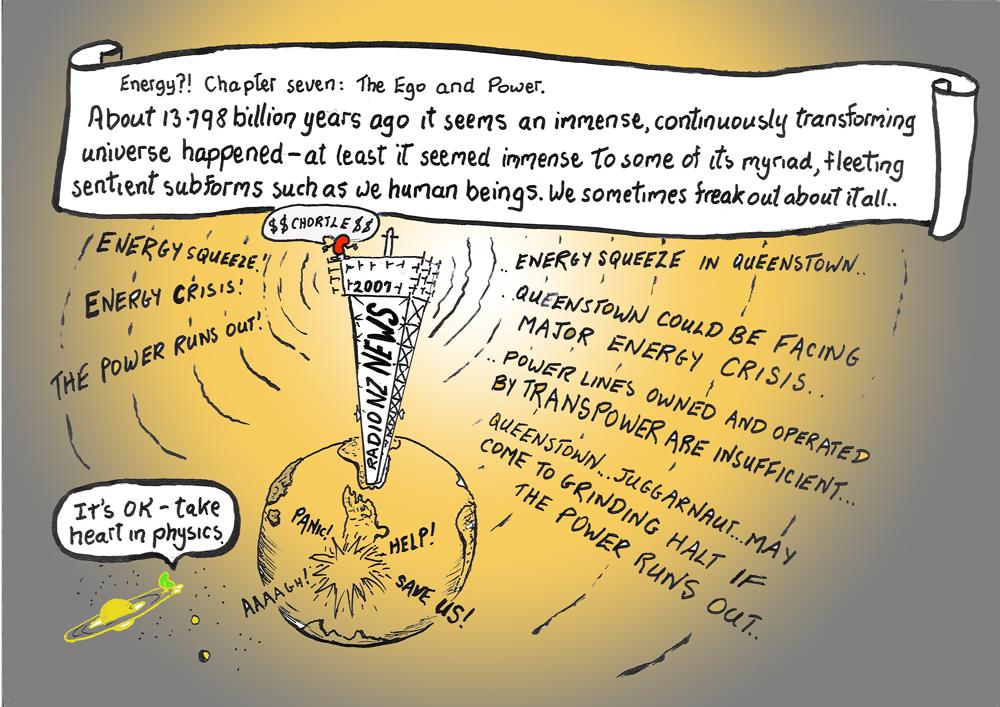 Energy?! Chapter seven: The Ego and Power.
About 13.798 billion years ago it seems an immense, continuously transforming
universe happened – at least it seemed immense to some of its myriad, fleeting
sentient subforms such as we human beings. We sometimes freak out about it all..
$$CHORTLE$$
ENERGY SQUEEZE!
ENERGY CRISIS!
THE POWER RUNS OUT!
2007
RADIO NZ NEWS
.. ENERGY SQUEEZE IN QUEENSTOWN..
..QUEENSTOWN COULD BE FACING
MAJOR ENERGY CRISIS..
..POWER LINES OWNED AND OPERATED
BY TRANSPOWER ARE INSUFFICIENT...
QUEENSTOWN...JUGGARNAUT...MAY
COME TO GRINDING HALT IF
THE POWER RUNS OUT..
It's OK – take
heart in physics.
PANIC!
HELP!
AAAAGH!
SAVE US!